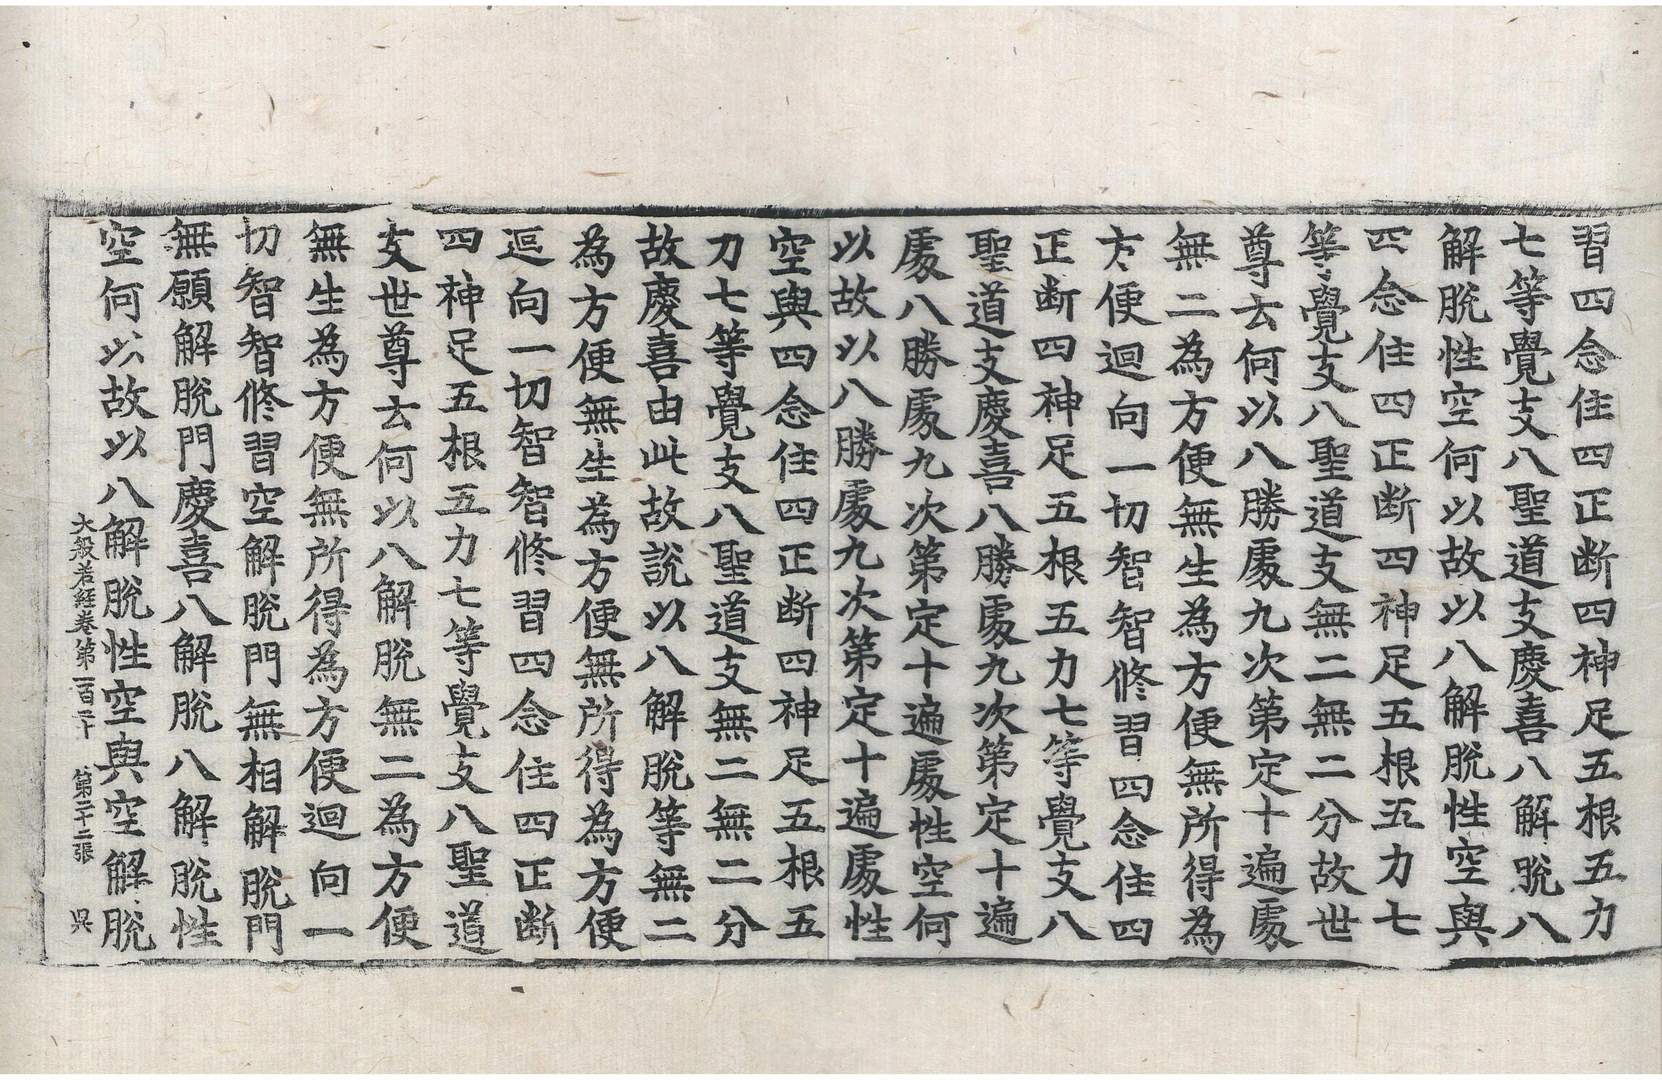 習四念住四正断四神足五根五力
七等覺支八聖道支慶喜八解脫八
解脫性空何以故以八解脫性空與
四念住四正断四神足五根五力七
等覺支八聖道支無二無二分故世
尊云何以八勝處九次第定十遍處
無二為方便無生為方便無所得為
方便迴向一切智智修習四念住四
正断四神足五根五力七等覺支八
聖道支慶喜八勝處九次第定十遍
處八勝處九次第定十遍處性空何
以故以八勝處九次第定十遍處性
空與四念住四正断四神足五根五
力七等覺支八聖道支無二無二分
故慶喜由此故說以八解脫等無二
為方便無生為方便無所得為方便
迴向一切智智修習四念住四正断
四神足五根五力七等覺支八聖道
支世尊云何以八解脫無二為方便
無生為方便無所得為方便迴向一
切智智修習空解脫門無相解脫門
無願解脫門慶喜八解脫八解脫性
空何以故以八解脫性空與空解脫
大般若經卷第一百二十 第二十二張 呉